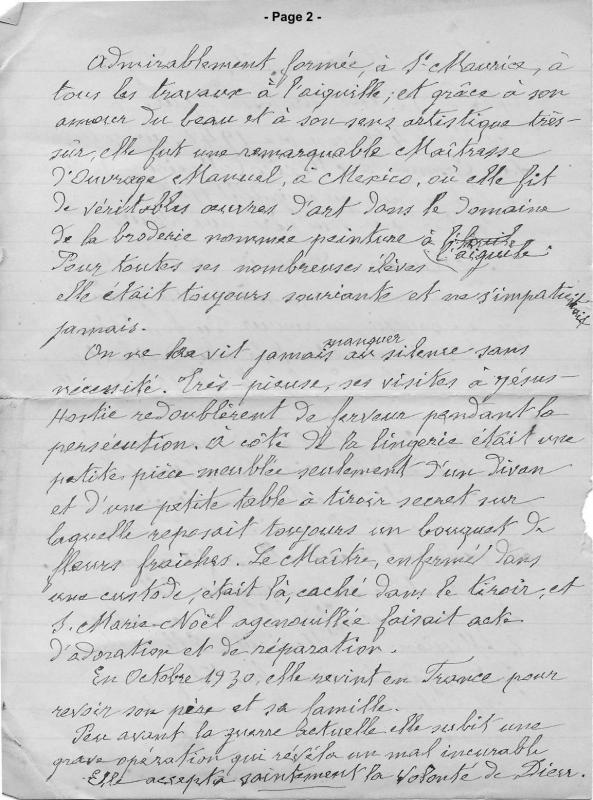 - Page 2 -
Admirablement formée, à St Maurice, à
tous les travaux à l'aiguille, et grâce à son
amour du beau et à son sens artistique très-
sûr, elle fut une remarquable Maîtresse
d'Ouvrage Manuel, à Mexico, où elle fit
de véritables œuvres d'art dans le domaine
de la broderie nommée peinture à
l'aiguille.
Pour toutes ses nombreuses élèves
elle était toujours souriante et ne s'impatientait
jamais.
On ne la vit jamais manquer au silence sans
nécessité. Très-pieuse, ses visites à Jésus-
Hostie redoublèrent de ferveur pendant la
persécution. À côté de la lingerie était une
petite pièce meublée seulement d'un divan
et d'une petite table à tiroir secret sur
laquelle reposait toujours un bouquet de
fleurs fraîches. Le Maître, enfermé dans
une custode, était là, caché dans le tiroir, et
S. Marie-Noël agenouillée faisait acte
d'adoration et de réparation.
En Octobre 1930, elle revint en France pour
revoir son père et sa famille.
Peu avant la guerre actuelle elle subit une
grave opération qui révéla un mal incurable
Elle accepta saintement la volonté de Dieu.